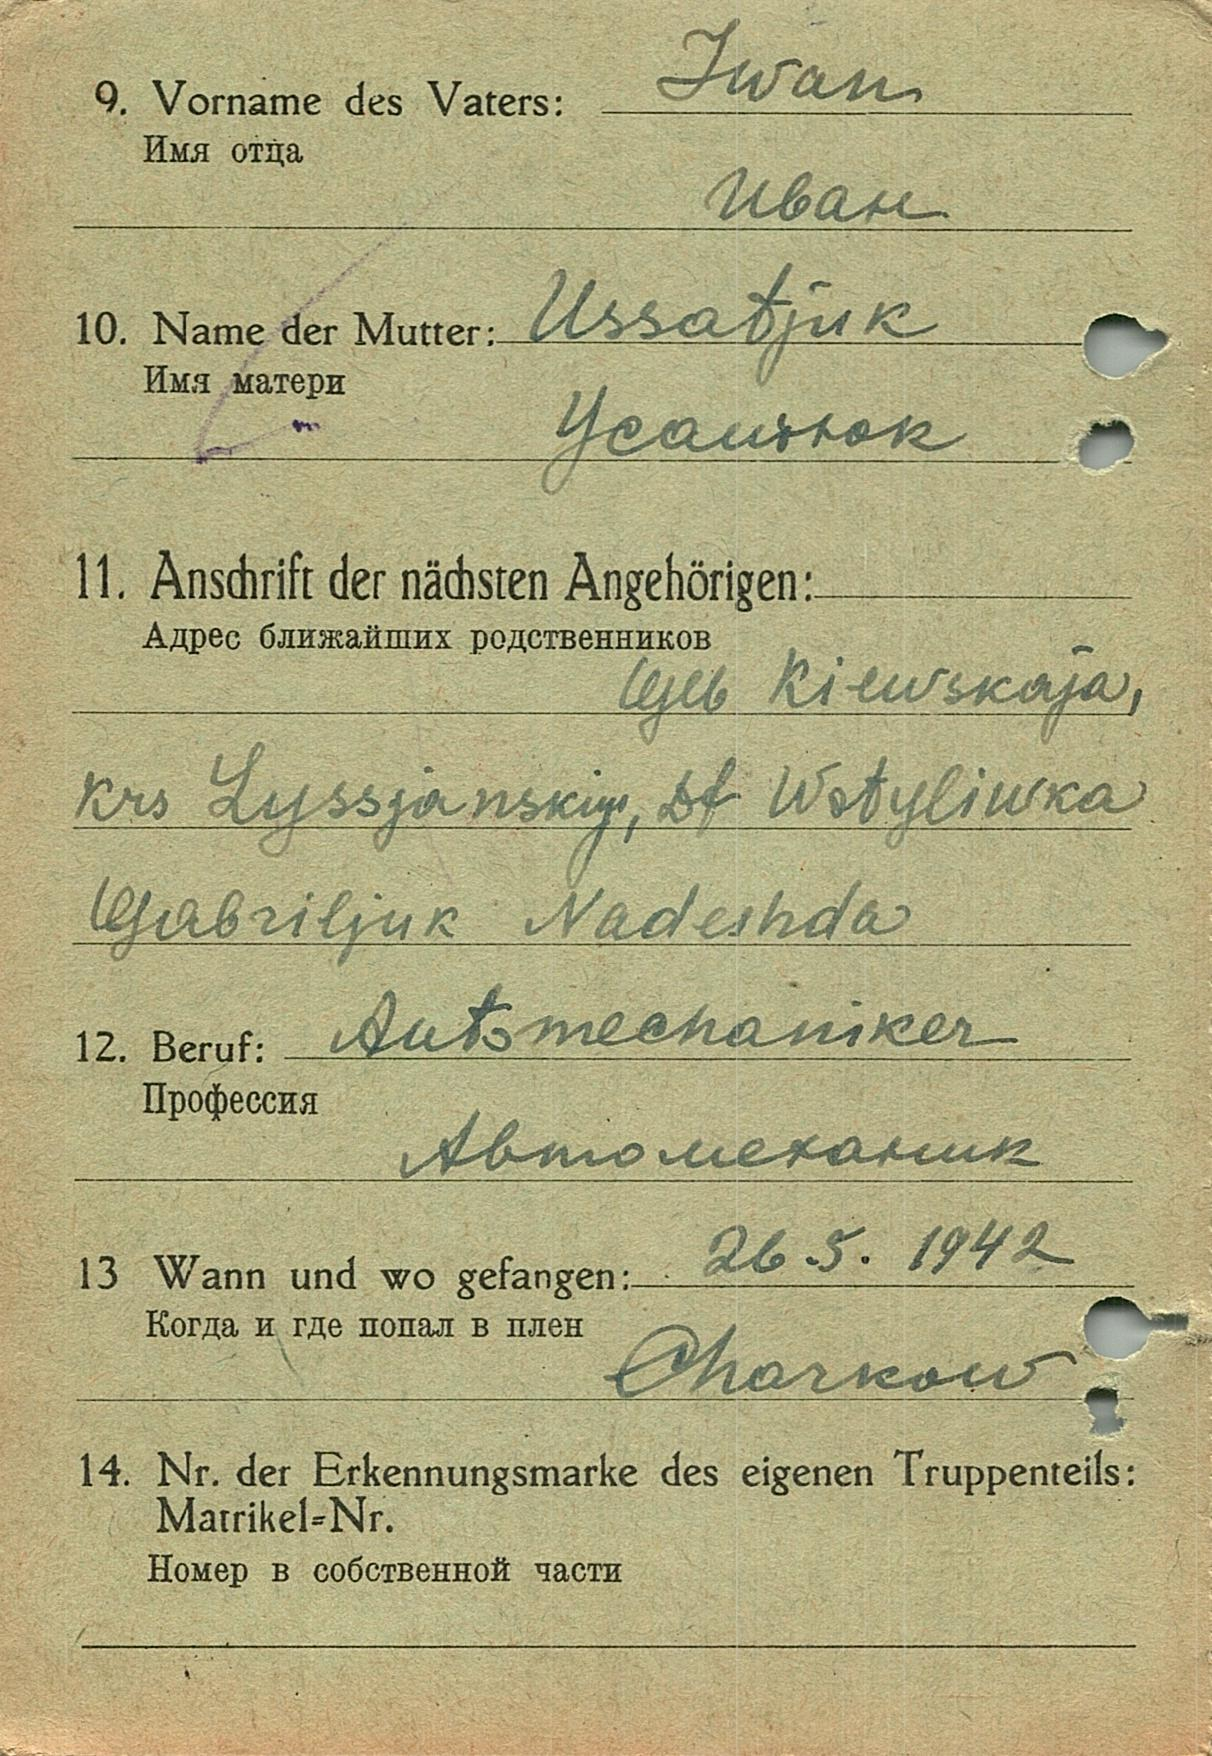 9. Vorname des Vaters: Iwan
Имя отца
Иван
10. Name der Mutter: Ussatjuk
Имя матери
Усатюк
11. Anschrift der nächsten Angehörigen:
Адрес ближайших родственников
Geb Kiewskaja,
Krs Lyssjanskij, Df Wotyliwka
Gabriljuk Nadeshda
12. Beruf: Automechaniker
Профессия
Автомеханик
13 Wann und wo gefangen: 26.5.1942
Когда и где попал в плен
Charkow
14. Nr. der Erkennungsmarke des eigenen Truppenteils:
Matrikel=Nr.
Номер в собственной части